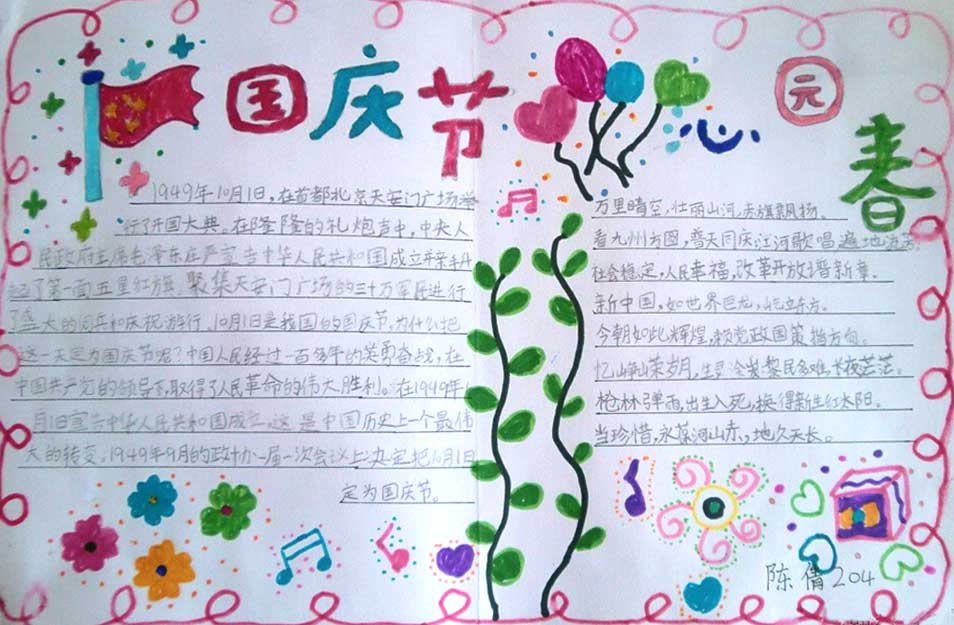 国庆节
1949年10月1日,在首都北京天安门广场举
行了开国大典,在隆隆的礼炮声中,中央人
民政府主席毛泽东庄严宣告中华人民共和国成立并亲手升
起了第一面五星红旗。聚集天安门广场的三十万军民进行
了盛大的阅兵和庆祝游行。10月1日是我国的国庆节,为什么把
这一天定为国庆节呢?中国人民经过一百多年的英勇奋战,在
中国共产党的领导下,取得了人民革命的伟大胜利。在1949年1
月1日宣告中华人民共和国成立,这是中国历史上一个最伟
大的转变。1949年9月的政协一届一次会议上决定把10月1日
定为国庆节。
心
园
春
万里晴空,壮丽山河,赤旗飘扬。
看九州方圆,普天同庆,江河歌唱遍地流芳
社会稳定,人民幸福,改革开放谱新章。
新中国,如世界巨龙,屹立东方。
今朝如此辉煌,赖党政国策挡方向。
忆峥嵘岁月,黎民多难,长夜茫茫。
枪林弹雨,出生入死,换得新生红太阳。
当珍惜,永葆河山赤,地久天长。
陈倩204